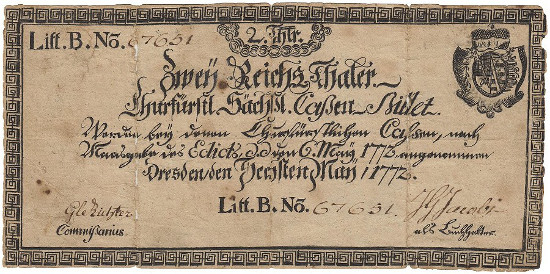 Litt. B. No. 67631
2. Thlr.
Zwey Reichs-Thaler
Churfürstl. Sächßl. Caßen-Billet
Werden bey denen Churfürstlichen Caßen, nach
Maasgabe des Edicts, d.d. den 6. May 1772 angenommen
Dresden den Sechsten May 1772.
Litt. B. No. 67631.
Commissarius.
als Buchhalter.